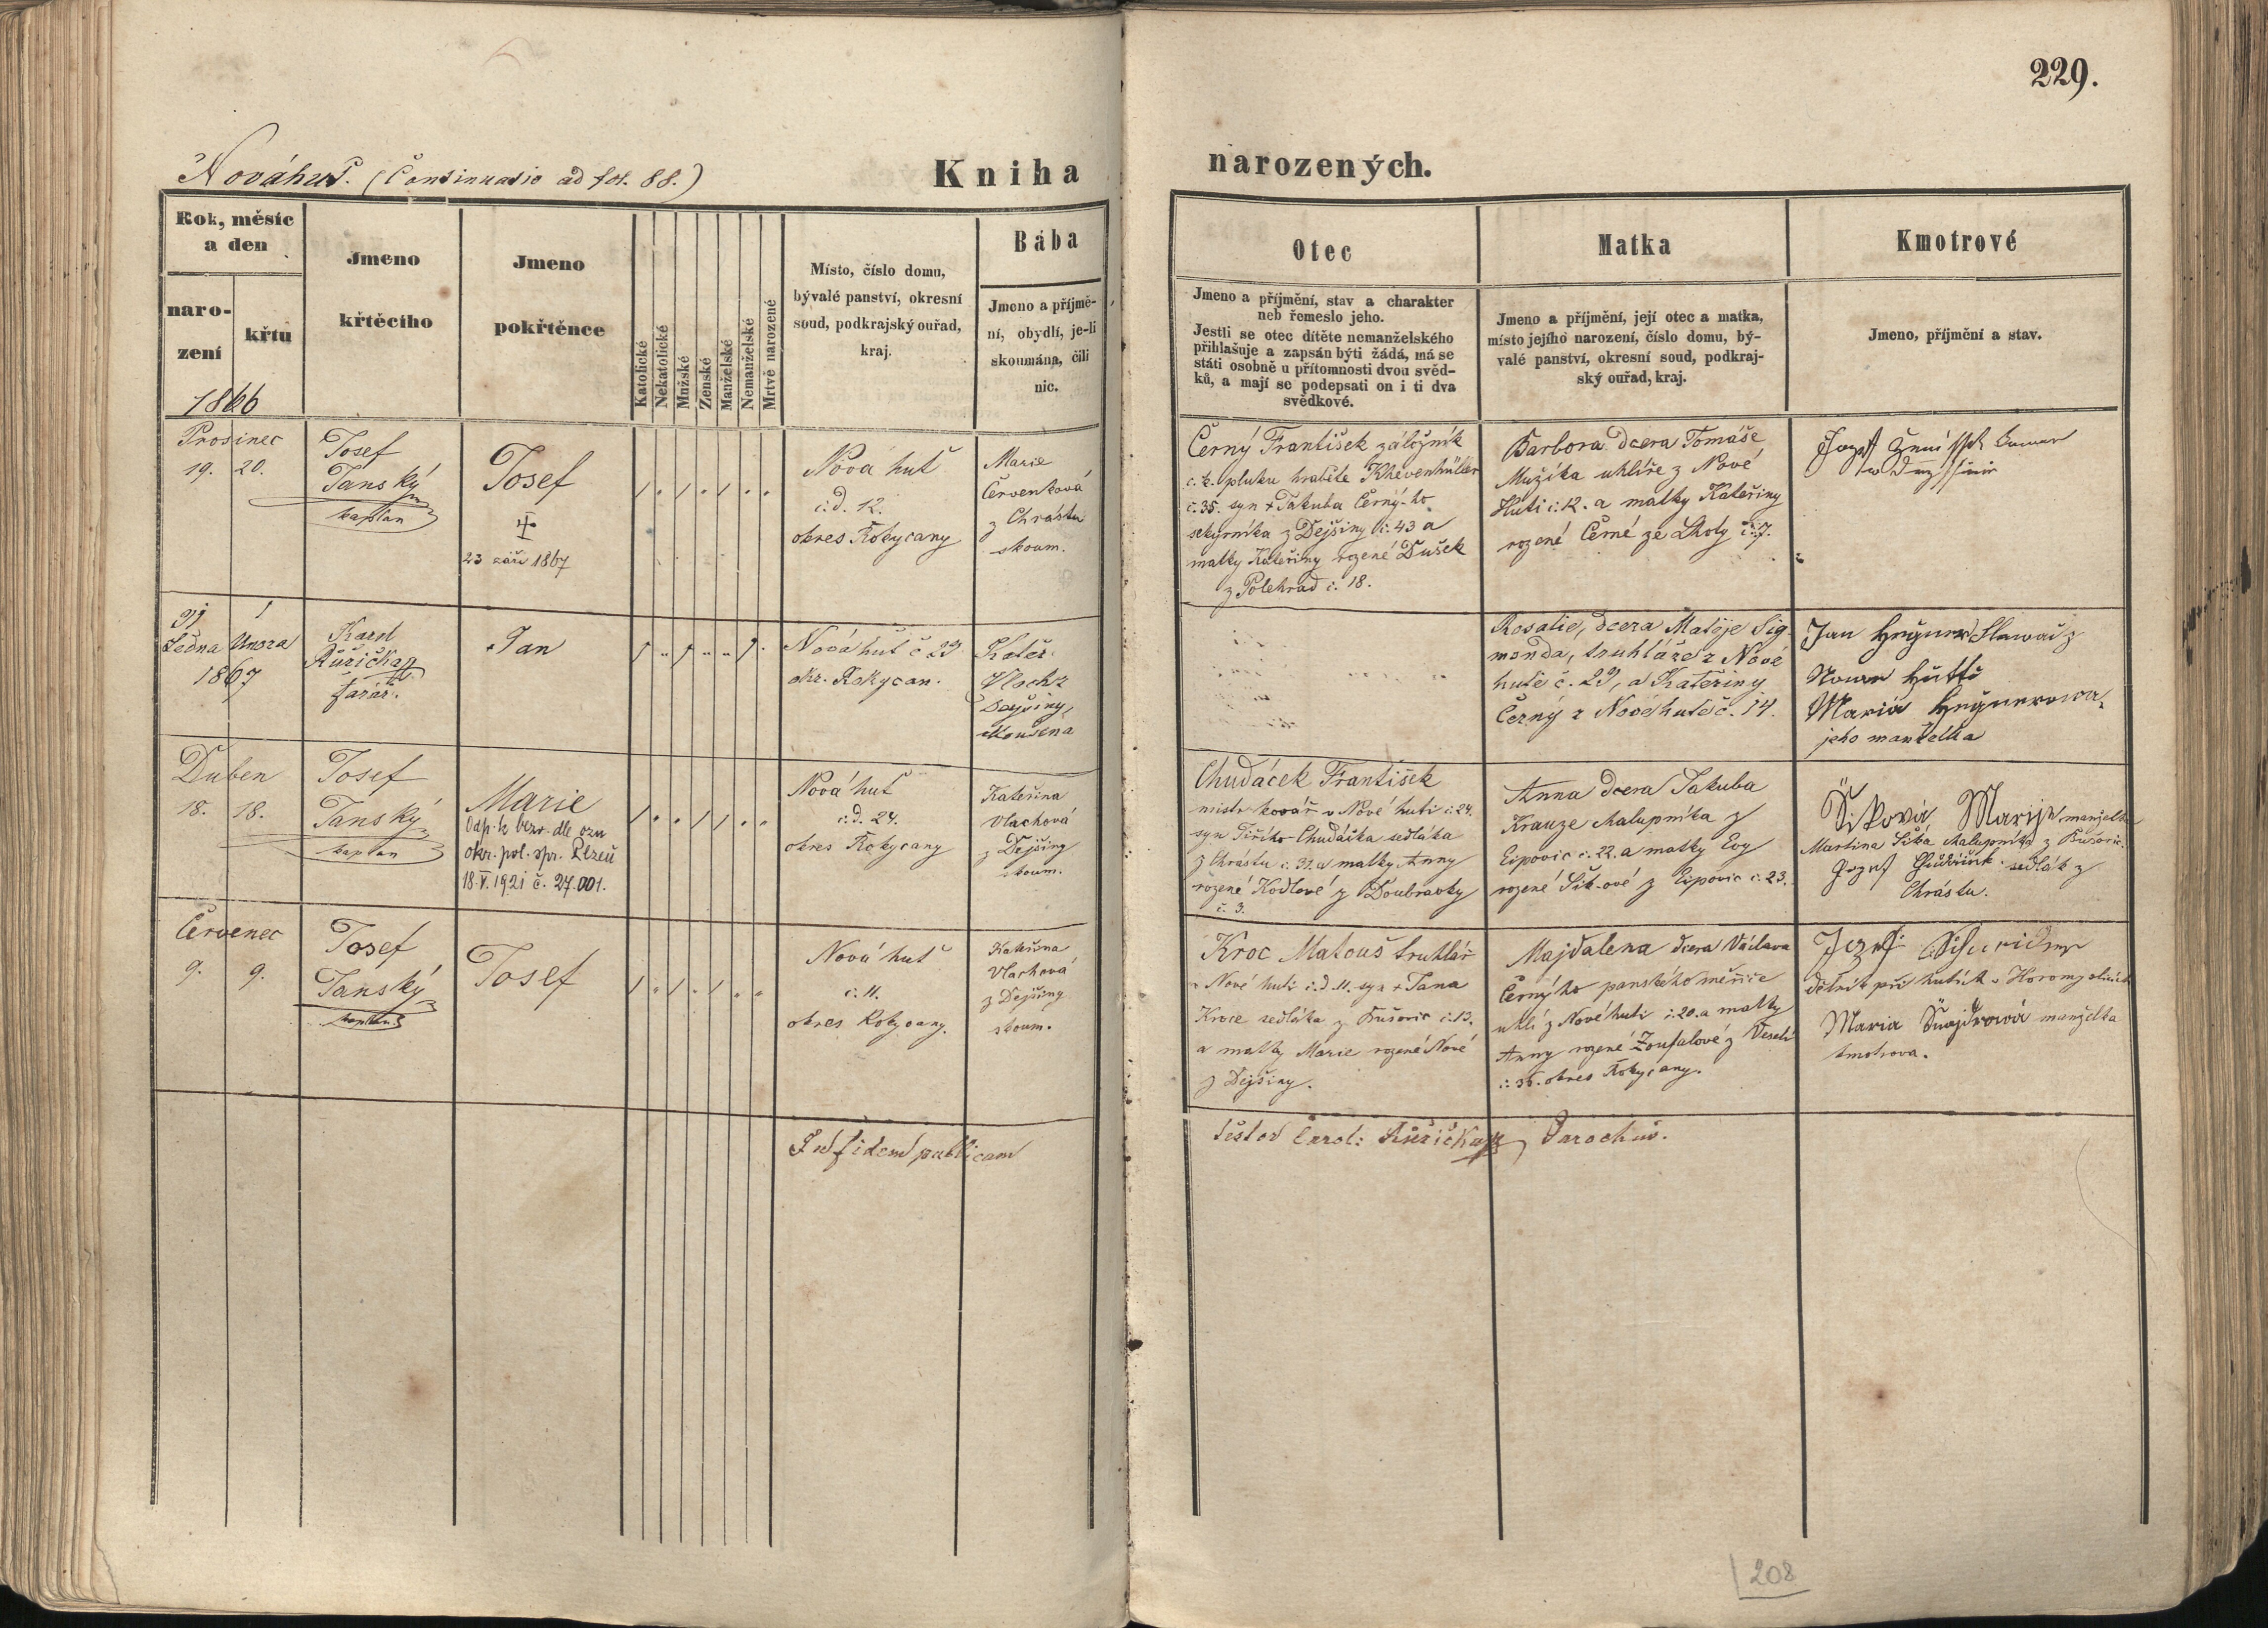 229.
Nováhuť. (Continuatio ad fol. 88.)
Kniha narozených.
Rok, měsíc
a den
naro-
zení
křtu
1866
Jmeno
křtěcího
Jmeno
pokřtěnce
Katolické
Nekatolické
Mužské
Ženské
Manželské
Nemanželské
Mrtvě narozené
Místo, číslo domu,
bývalé panství, okresní
soud, podkrajský ouřad,
kraj.
Bába
Jmeno a příjmě-
ní, obydlí, je-li
skoumána, čili
nic.
Otec
Jmeno a příjmění, stav a charakter
neb řemeslo jeho.
Jestli se otec dítěte nemanželského
přihlašuje a zapsán býti žádá, má se
státi osobně u přítomnosti dvou svěd-
ků, a mají se podepsati on i ti dva
svědkové.
Matka
Jmeno a příjmění, její otec a matka,
místo jejího narození, číslo domu, bý-
valé panství, okresní soud, podkraj-
ský ouřad, kraj.
Kmotrové
Jmeno, příjmění a stav.
Prosinec
19. 20.
Josef
Tanský
kaplan
Josef
23 září 1867
Nová huť
č.d. 12.
okres Rokycany
Marie
Červenková
z Chrástu
skoum.
Černý František záložník
c. k. pluku hraběte Khevenhüller
č. 35. syn + Jakuba Černý-ho
sekyrníka z Dejšiny č. 43 a
matky Kateřiny rozené Dušek
z Polehrad č. 18.
Barbora dcera Tomáše
Mužíka uhlíře z Nové
Huti č. 12. a matky Kateřiny
rozené Černé ze Lhoty č. 7.
Josef
31 1
Ledna Února
1867
Karel
Růžička
farář.
Jan
Nová huť č 29
okr. Rokycan.
Kateř.
Vlach z
Dejšiny,
zkoušená
Rosalie, dcera Matěje Sig-
monda, truhláře z Nové
hutě č. 29, a Kateřiny
Černý z Nové hutě č. 14.
Jan Hegner z
Nowe Hutti
Maria Hegnerowa,
jeho manželka
Duben
18. 18.
Josef
Tanský
kaplan
Marie
Odp. k bezv. dle ozn
okr. pol. spr. Plzeň
18.V.1921 č. 27.001.
Nová huť
č.d. 24.
okres Rokycany
Kateřina
Vlachová
z Dejšiny
skoum.
Chudáček František
mistr kovář v Nové huti č. 24.
syn Jiřího Chudáčka sedláka
z Chrástu č. 31. a matky Anny
rozené Kodlové z Doubravky
č. 3.
Anna dcera Jakuba
Krauze chalupníka z
Ejpovic č. 22. a matky Evy
rozené Šik-ové z Ejpovic č. 23.
Šikova Marije manželka
Martina Šika chalupníka z Bušovic.
Josef sedlák z
Chrástu.
Červenec
9. 9.
Josef
Tanský
kaplan
Josef
Nová huť
č. 11.
okres Rokycany.
Kateřina
Vlachová
z Dejšiny
skoum.
Kroc Matouš truhlář
v Nové huti č.d. 11. syn + Jana
Kroce sedláka z Bušovic č. 13.
a matky Marie rozené Nové
z Dejšiny.
Majdalena dcera Václava
Černýho panského měřiče
uhlí z Nové huti č. 20. a matky
Anny rozené Zoufalové z Veselí
č. 36. okres Rokycany.
Josef
dělník při hutích v Horomyslicích
Maria Šnajdrowá manželka
kmotrova.
In fidem publicam
testor Carol: Růžička Parochus.
208